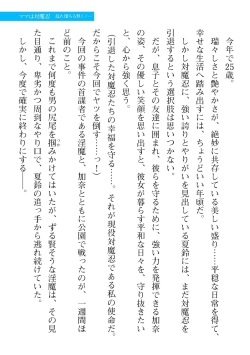 ママは対魔忍
今年で25歳。
瑞々しさと艶やかさが、絶妙に共存している美しい盛り……平穏な日常を得て、
幸せな生活へ踏み出すには、ちょうどいい年頃だ。
しかし対魔忍に、強い誇りとやりがいを見出している夏鈴には、まだ対魔忍を
引退するという選択肢は思いつかない。
だが、息子とその友達に囲まれ、彼らを守るために、強い力を発揮できる加奈
の姿、その優しい笑顔を思い出すと、彼女が暮らす平和な日々を、守り抜きたい
と、心から強く思う。
(引退した対魔忍たちの幸福を守る……。それが現役対魔忍である私の使命だ。
だからこそ今回でヤツを倒す……っ!)
今回の事件の首謀者である淫魔と、加奈とともに公園で戦ったのが、一週間ほ
ど前のこと。
これまで何度も男の尻尾を掴みかけてはいたが、ずる賢そうな淫魔は、その見
た目通り、卑劣かつ周到なやり口で、夏鈴の追っ手から逃れ続けていた。
しかし、今度で確実に終わりにする――。